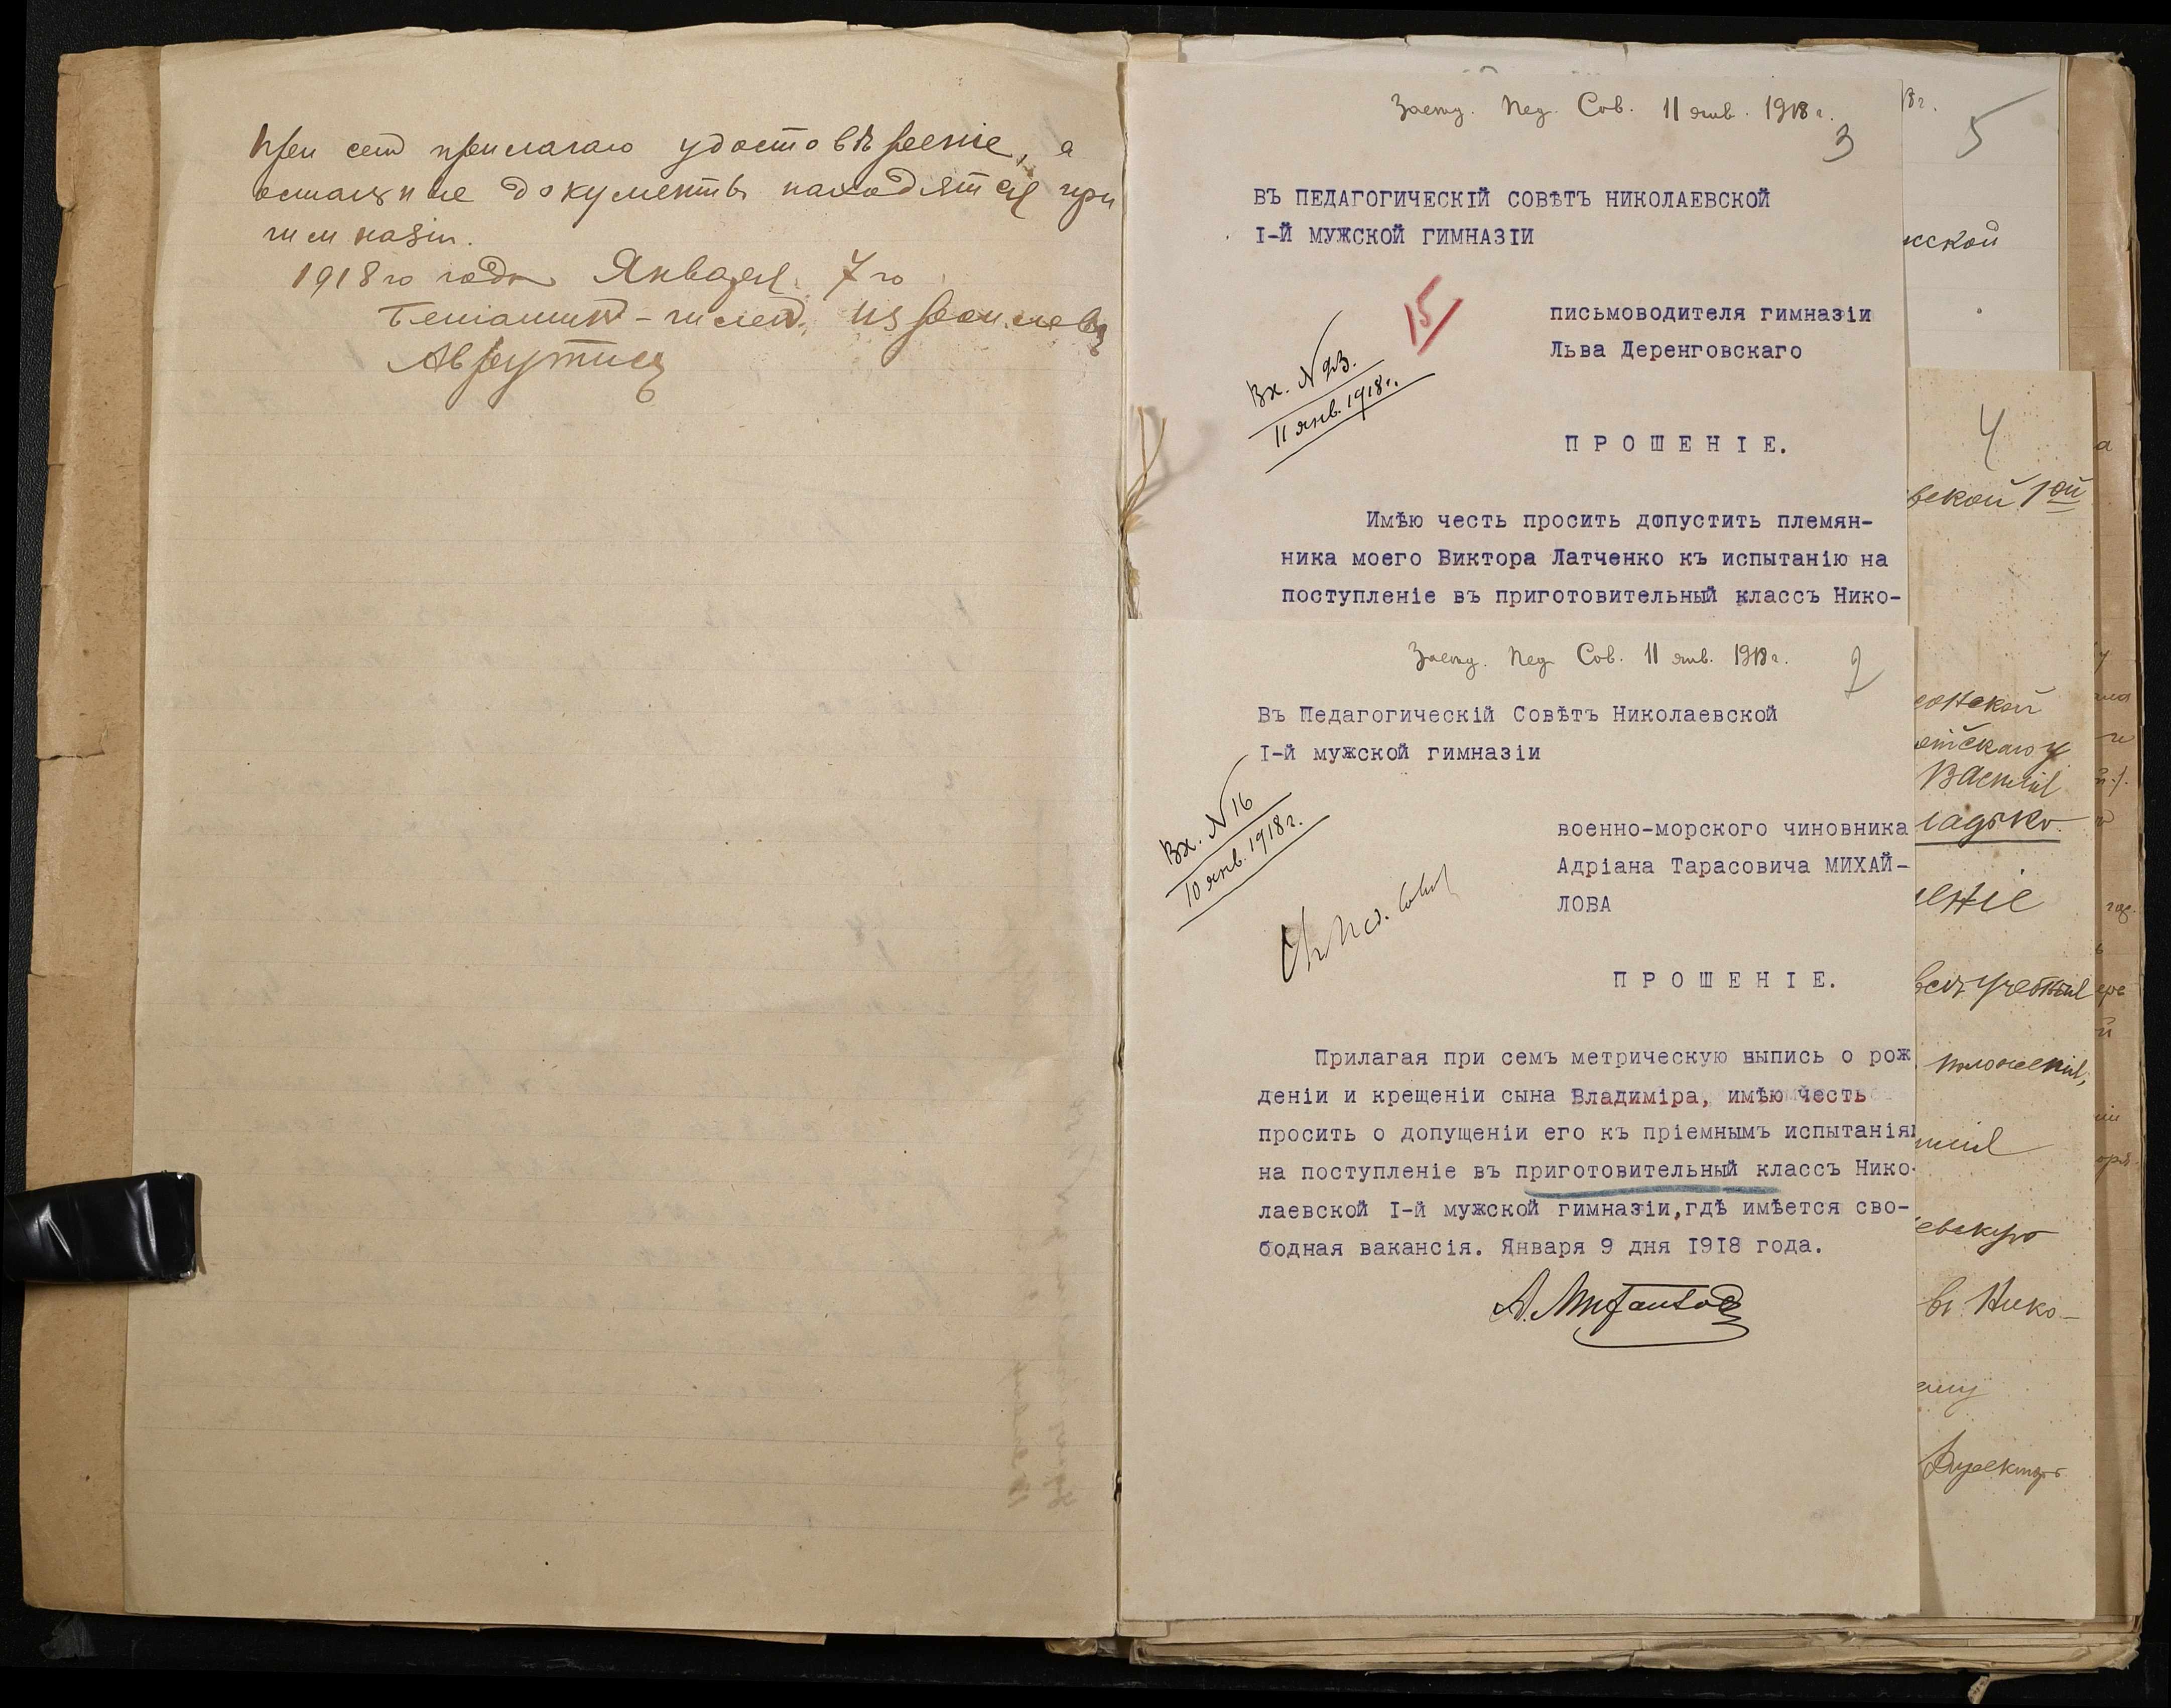 При семъ прилагаю удостовѣреніе, а
остальные документы находятся при
гимназіи.
1918го года Января 7го
Беніаминъ-
Аврутинъ
Засѣд. Пед. Сов. 11 янв. 1918 г.
3
ВЪ ПЕДАГОГИЧЕСКІЙ СОВѢТЪ НИКОЛАЕВСКОЙ
I-Й МУЖСКОЙ ГИМНАЗІИ
15
письмоводителя гимназіи
Льва Деренговскаго
Вх. № 23.
11 янв. 1918 г.
П Р О Ш Е Н І Е.
Имѣю честь просить допустить племян-
ника моего Виктора Латченко къ испытанію на
поступленіе въ приготовительный классъ Нико-
Засѣд. Пед. Сов. 11 янв. 1918 г.
2
Въ Педагогическій Совѣтъ Николаевской
I-й мужской гимназіи
Вх. № 16
10 янв. 1918 г.
военно-морского чиновника
Адріана Тарасовича МИХАЙ-
ЛОВА
Пед. Совѣт
П Р О Ш Е Н І Е.
Прилагая при семъ метрическую выпись о рож
деніи и крещеніи сына Владиміра, имѣю честь
просить о допущеніи его къ пріемнымъ испытанія
на поступленіе въ приготовительный классъ Нико-
лаевской I-й мужской гимназіи,гдѣ имѣется сво-
бодная вакансія. Января 9 дня 1918 года.
А. Михайлов
8 г.
5
жской
4
вской 1ой
Василія
ладько.
еніе
положенія,
евскую
въ Нико-
Директоръ